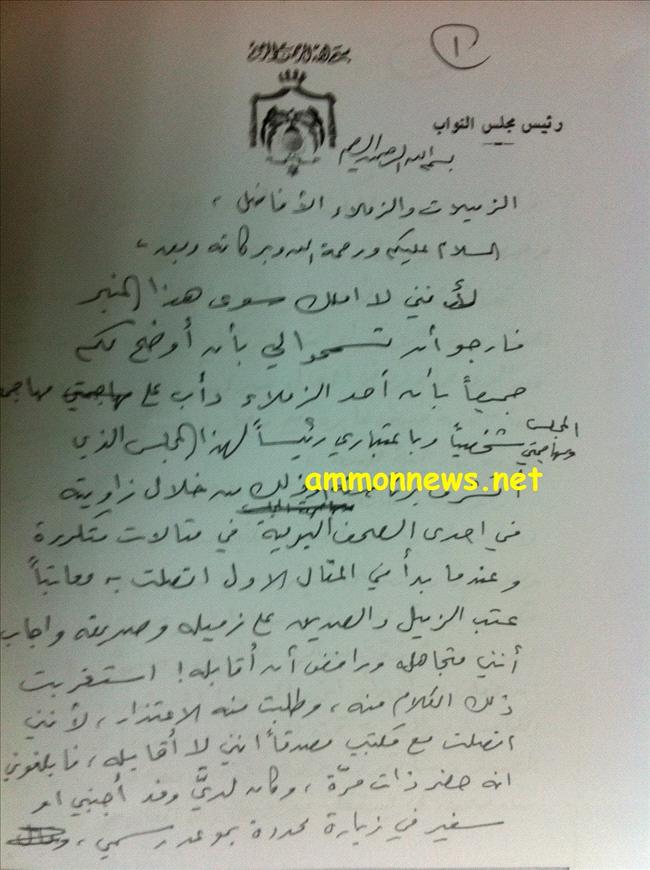 ١
بسم الله الرحمن الرحيم
رئيس مجلس النواب
بسم الله الرحمن الرحيم
الزميلات والزملاء الأفاضل ،
السلام عليكم ورحمة الله وبركاته وبعد ،
لأنني لا املك سوى هذا المنبر
فارجو أن تسمحوا لي بأن أوضح لكم
جميعاً بأن أحد الزملاء دأب على مهاجمتي مهاجمة
المجلس
ومهاجمتي شخصياً وباعتباري رئيساً لهذا المجلس الذي
وذلك من خلال زاويته
ammonnews.net
في احدى الصحف اليومية في مقالات متكررة
وعندما بدأ في المقال الاول اتصلت به معاتباً
عتب الزميل والصديق على زميله وصديقه واجاب
أنني متجاهله ورافض أن أقابله ! استغربت
ذلك الكلام منه ، وطلبت منه الاعتذار ، لأنني
اتصلت مع مكتبي مصدقاً انني لا أقابله ، فابلغوني
انه حضر ذات مرّة ، وكان لديَّ وفد أجنبي او
سفير في زيارة محددة بموعد رسمي ،